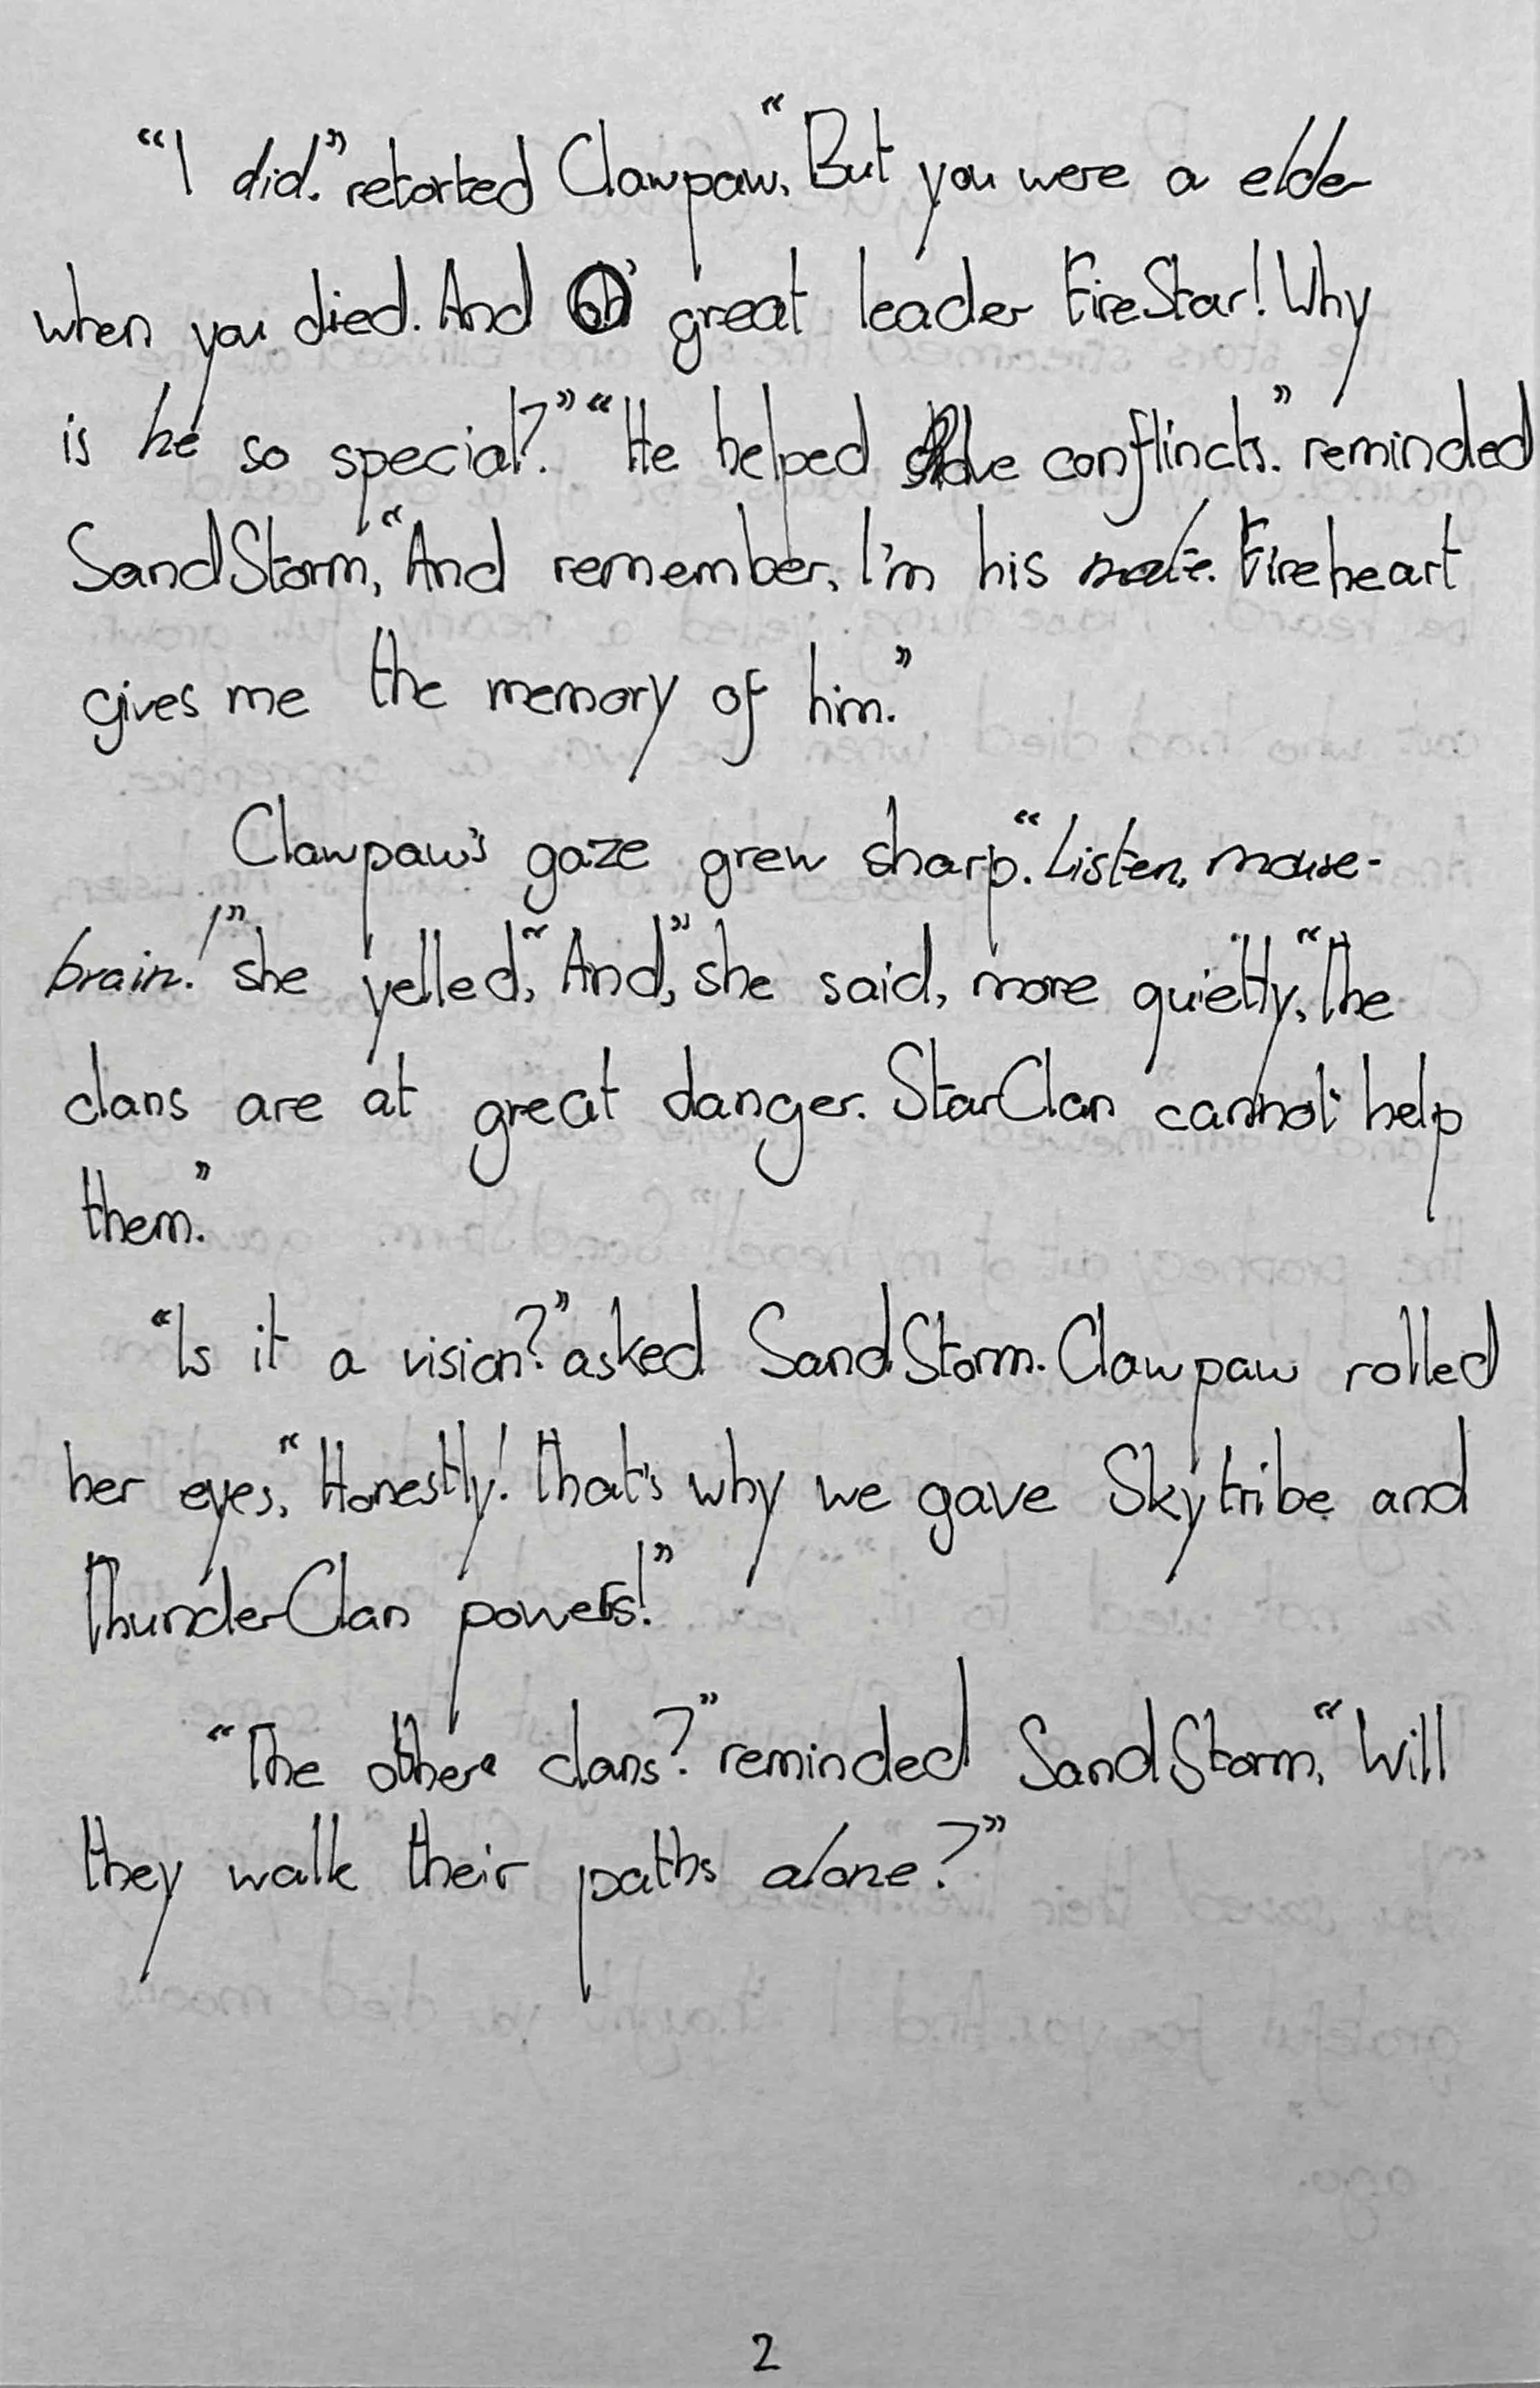 “I did.” retorted Clawpaw, “But you were a elder
when you died. And oh' great leader FireStar! Why
is he so special?” “He helped solve conflincts.” reminded
SandStorm, “And remember, I'm his mate. Fireheart
gives me the memory of him.”
Clawpaw's gaze grew sharp. “Listen, mouse-
brain!” she yelled, “And,” she said, more quietly, “The
clans are at great danger. StarClan cannot help
them.”
“Is it a vision?” asked SandStorm. Clawpaw rolled
her eyes, “Honestly! That's why we gave Skytribe and
ThunderClan powers!”
“The others clans?” reminded SandStorm, “Will
they walk their paths alone?”
2